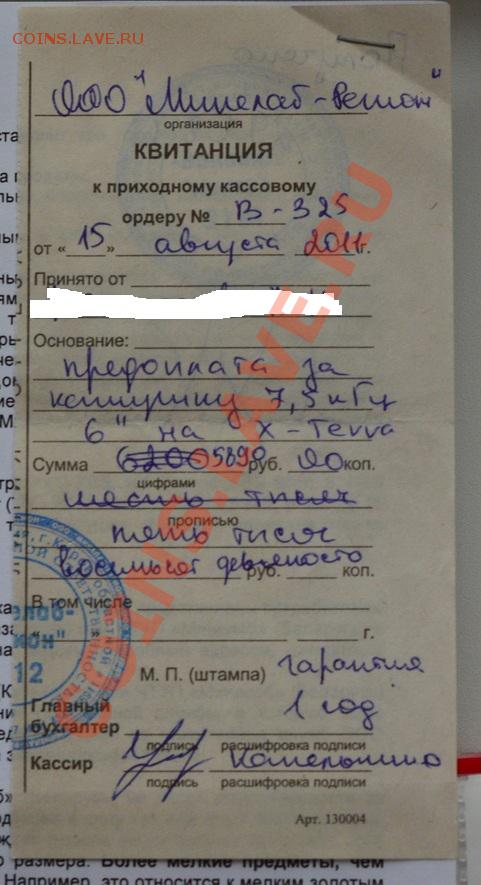 COINS.LAVE.RU
ООО "Минелаб-Регион"
организация
КВИТАНЦИЯ
к приходному кассовому
ордеру № В-325
от «15» августа 2011г.
Принято от
Основание:
предоплата за
катушку 7,5 кГц
6" на X-Terra
Сумма 6200 5890 руб. 00 коп.
цифрами
шесть тысяч
прописью
пять тысяч
восемьсот девяносто
руб. коп.
В том числе
« » г.
М. П. (штампа) гарантия
Главный 1 год
бухгалтер
подпись расшифровка подписи
Кассир
подпись расшифровка подписи
Арт. 130004
COINS.LAVE.RU
размера. Более мелкие предметы, чем
Например, это относится к мелким золотым